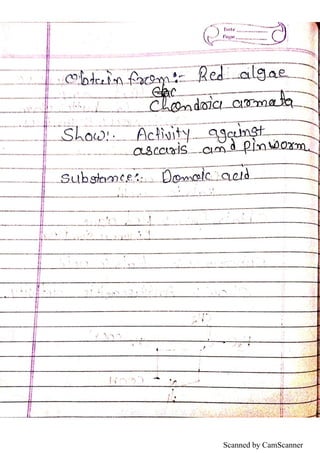 Date
Page
Obtain from:- Red algae
Chondria armata
Show:- Activity against
ascaris and pinworm
Substance:- Domoic acid
Scanned by CamScanner